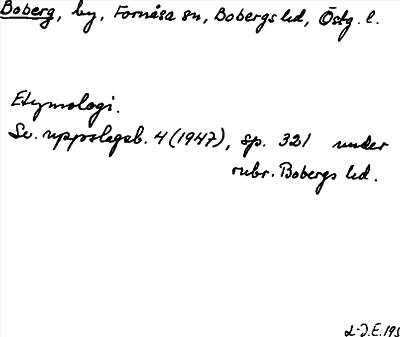 Boberg, by, Fornåsa sn, Bobergs hd, Östg. l.
Etymologi.
Sv. uppslagsb. 4 (1947), sp. 321 under
rubr. Bobergs hd.
L-J.E. 195